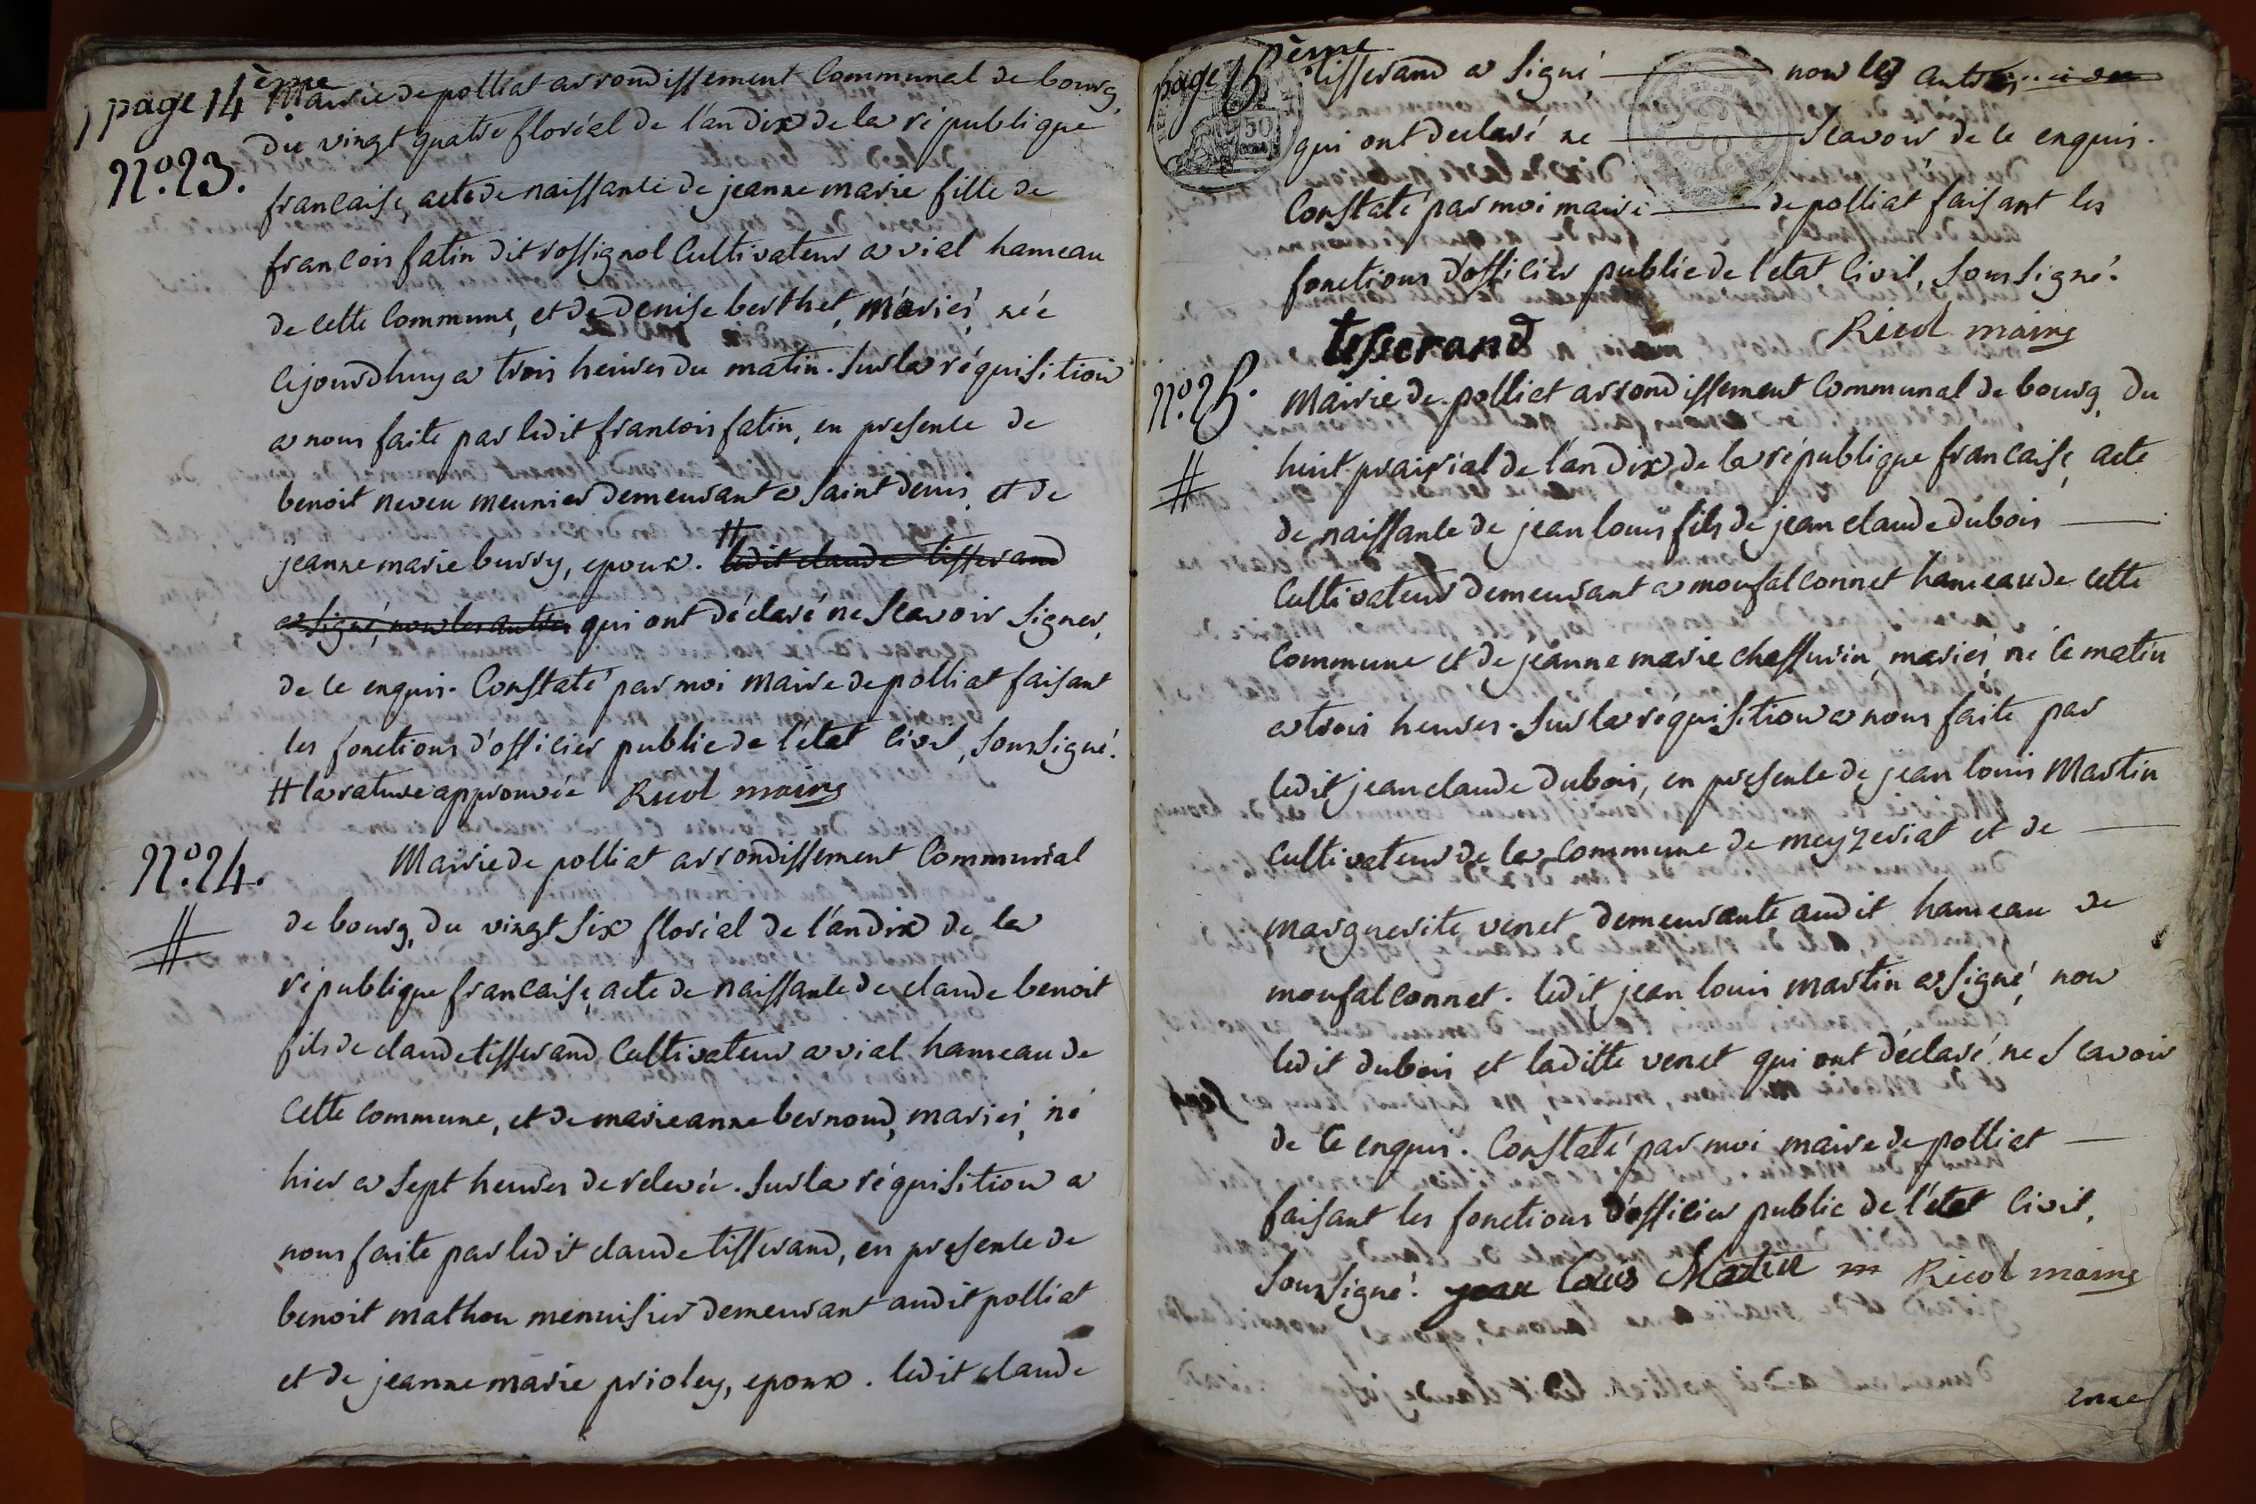 page 14ème
Mairie de polliat arrondissement Communal de bourg,
N.o 23.
du vingt quatre floréal de l'an dix de la république
francaise, acte de naissance de jeanne marie fille de
francois fatin dit rossignol Cultivateur a vial hameau
de cette Commune, et de denise berthet, mariés, née
cejourdhuy a trois heures du matin. Sur la réquisition
a nous faite par ledit francois fatin, en presence de
benoit neveu meunier demeurant a Saint denis, et de
jeanne marie burry, epoux. # ledit claude tisserand
a signé, non les autres qui ont déclaré ne Scavoir Signer,
de ce enquis. Constaté par moi maire de polliat faisant
les fonctions d'officier public de l'état Civil, Soussigné.
# la rature approuvée Ricol maire
N.o 24.
Mairie de polliat arrondissement Communal
#
de bourg, du vingt Six floréal de l'an dix de la
république francaise, acte de naissance de claude benoit
fils de claude tisserand Cultivateur a vial hameau de
Cette commune, et de marie anne bernoud, mariés, né
hier a Sept heures de relevée. Sur la réquisition a
nous faite par ledit claude tisserand, en presence de
benoit mathou menuisier demeurant audit polliat
et de jeanne marie prioley, epoux. ledit claude
page 15ème
tisserand a Signé non les autres
qui ont declaré ne Scavoir de ce enquis.
Constaté par moi maire de polliat faisant les
fonctions d'officier public de l'état Civil, Soussigné.
tisserand Ricol maire
N.o 25.
Mairie de polliat arrondissement Communal de bourg, du
#
huit prairial de l'an dix de la république francaise, acte
de naissance de jean louis fils de jean claude dubois
Cultivateur demeurant a monfalconnet hameau de cette
Commune et de jeanne marie chassurin, mariés, né ce matin
a trois heures. Sur la réquisition a nous faite par
ledit jean claude dubois, en presence de jean louis Martin
Cultivateur de la Commune de meyzeriat et de
marguerite venet demeurante audit hameau de
monfalconnet. ledit jean louis martin a Signé, non
ledit dubois et laditte venet qui ont déclaré ne Scavoir
de Ce enquis. Constaté par moi maire de polliat
faisant les fonctions d'officier public de l'état Civil,
Soussigné. jean louis Martin Ricol maire